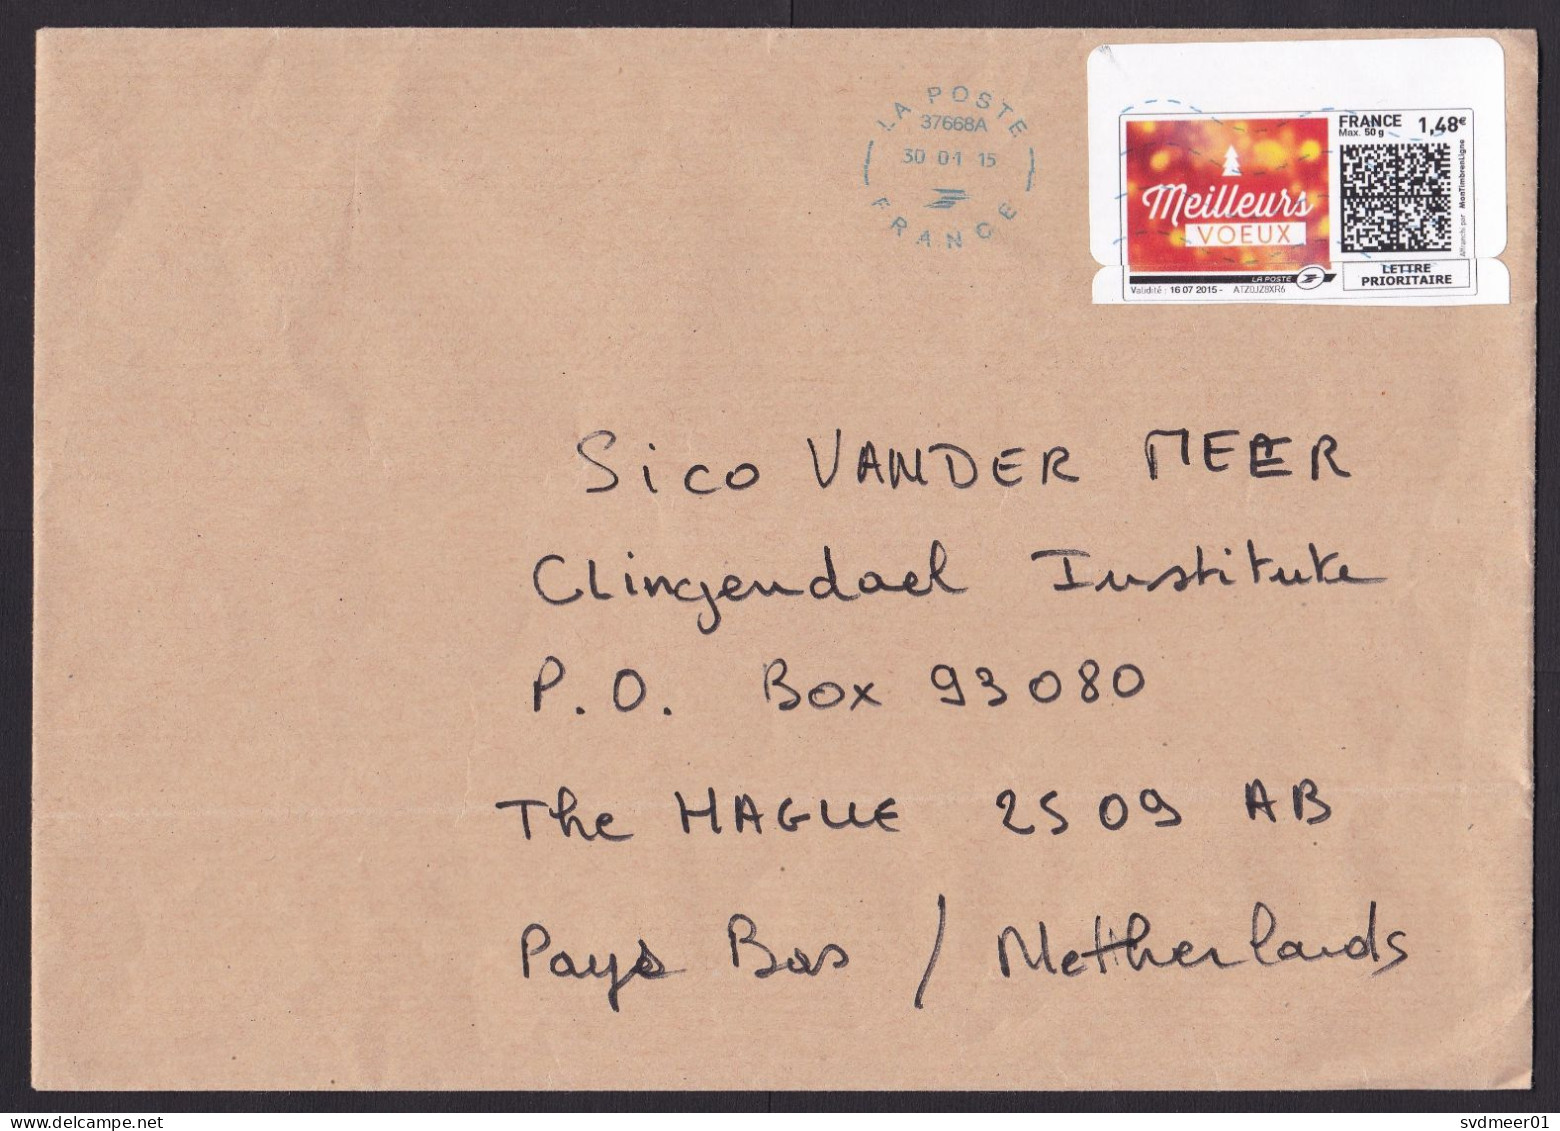 LA POSTE
37668A
30 01 15
FRANCE
Meilleurs
VOEUX
FRANCE 1,48€
Max. 50 g
Affranchi par MonTimbrenLigne
LA POSTE
LETTRE
PRIORITAIRE
Validité : 16 07 2015 - ATZ0JZ8XR6
Sico VANDER MEER
Clingendael Institute
P.O. Box 93080
The HAGUE 2509 AB
Pays Bas / Netherlands
svdmeer01